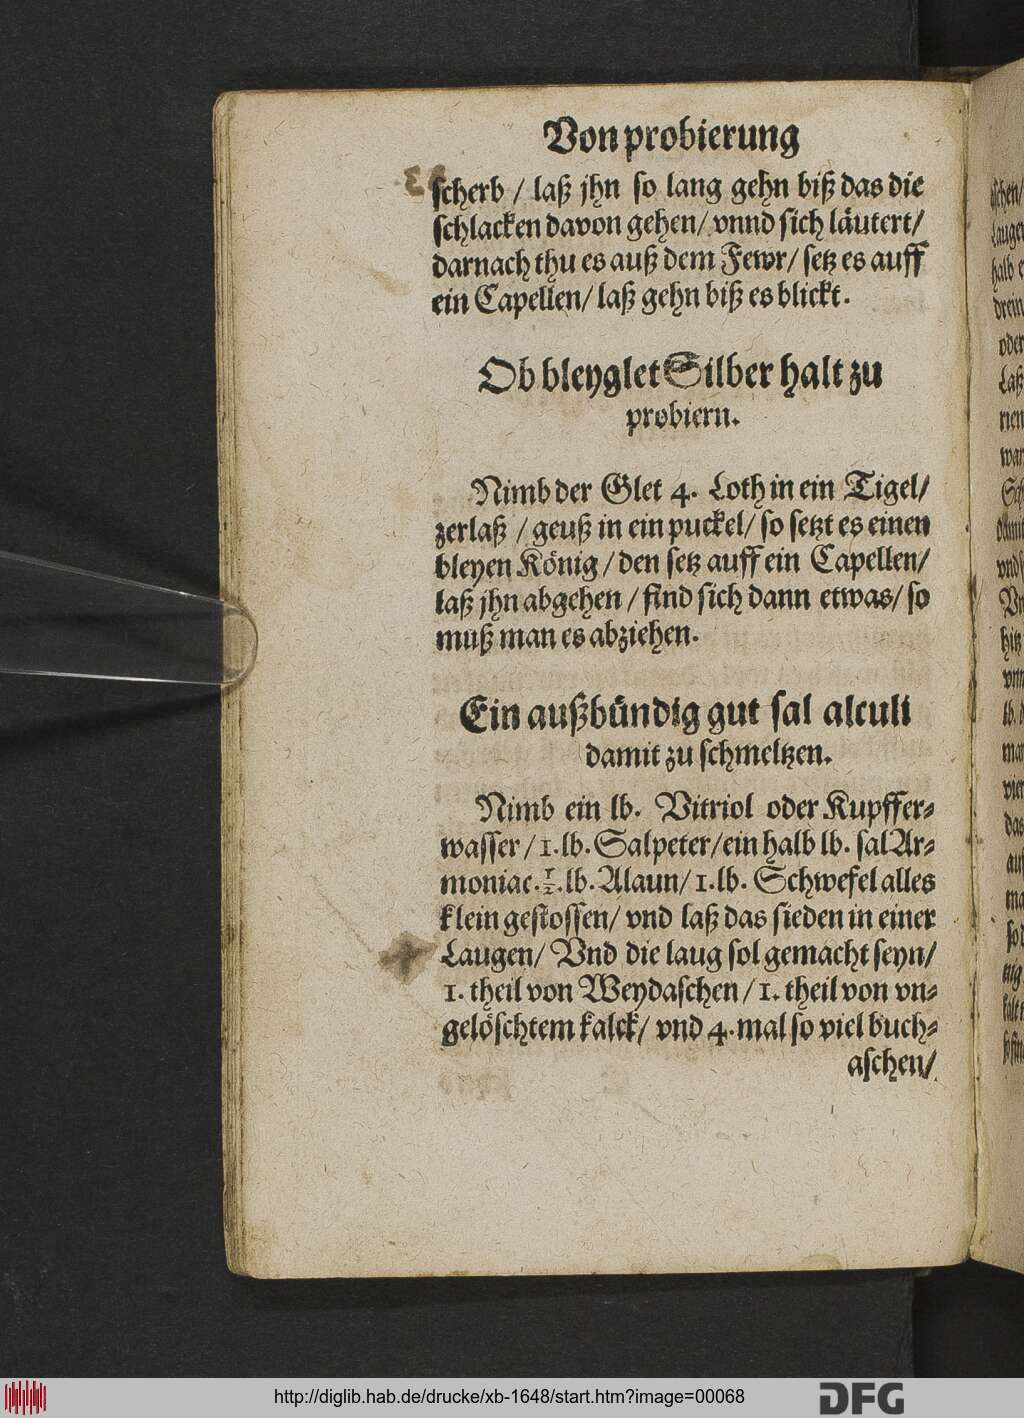 Von probierung
scherb / laß jhn so lang gehn biß das die
schlacken davon gehen / vnnd sich läutert /
darnach thu es auß dem Fewr / setz es auff
ein Capellen / laß gehn biß es blickt.
Ob bleyglet Silber halt zu
probiern.
Nimb der Glet 4. Loth in ein Tigel /
zerlaß / geuß in ein puckel / so setzt es einen
bleyen König / den setz auff ein Capellen /
laß jhn abgehen / find sich dann etwas / so
muß man es abziehen.
Ein außbündig gut sal alculi
damit zu schmeltzen.
Nimb ein lb. Vitriol oder Kupffer-
wasser / 1. lb. Salpeter / ein halb lb. sal Ar-
moniac. ½. lb. Alaun / 1. lb. Schwefel alles
klein gestossen / vnd laß das sieden in einer
Laugen / Vnd die laug sol gemacht seyn /
1. theil von Weydaschen / 1. theil von vn-
gelöschtem kalck / vnd 4. mal so viel buch-
aschen /
http://diglib.hab.de/drucke/xb-1648/start.htm?image=00068
DFG